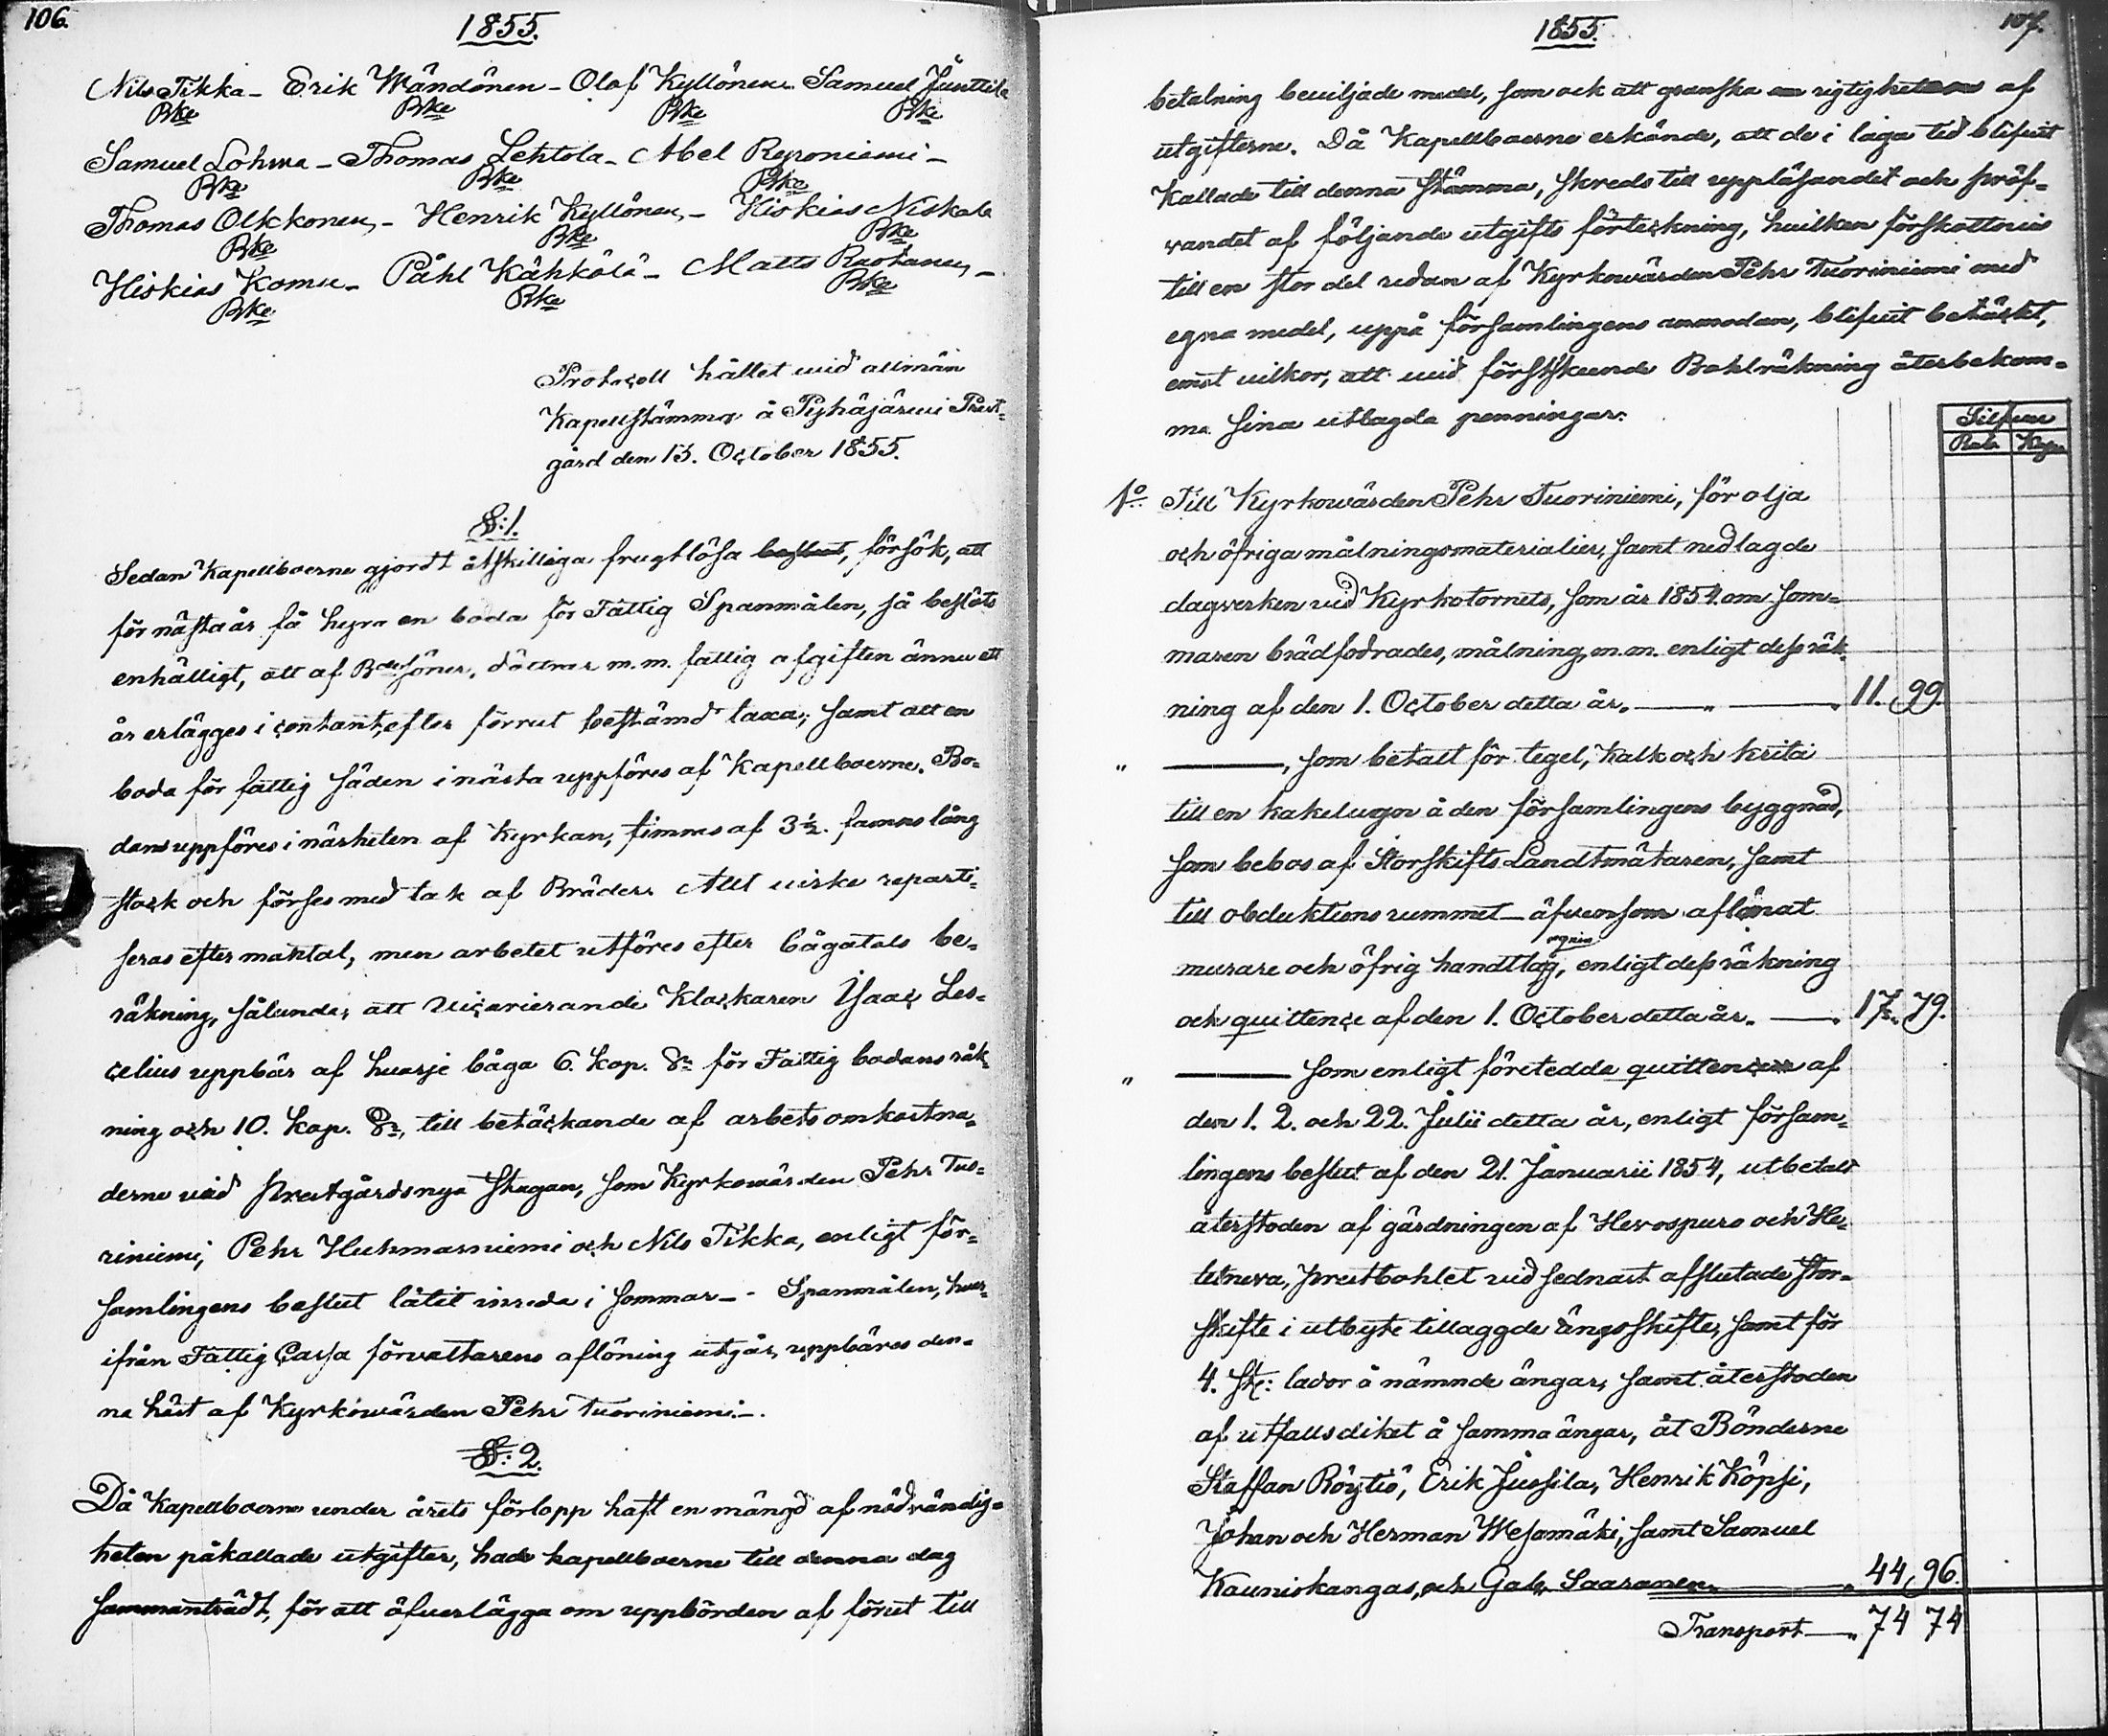 106.
1855.
Nils Tikka - Erik Mändönen - Olof Kyllönen Samuel Junttila
Bke Bke Bke Bke
Samuel Lohwa - Thomas Lehtola - Abel Reponiemi -
Bke Bke Bke
Thomas Olkkonen, - Henrik Kyllönen, - Hiskias Niskala
Bke Bke Bke
Hiskias Komu - Påhl Kähkölä - Matts Ruotanen, -
Bke Bke Bke
Protocoll hållet wid allmän
Kapellstämma å Pyhäjärwi Prest-
gård den 13. October 1855.
§:1.
Sedan Kapellboerne gjordt åtskilliga fruktlösa beslut, försök, att
för nästa år få hyra en boda för Fattig Spanmålen, så beslöts
enhälligt, att af Bdesöner, döttrar m.m. fattig afgiften ännu ett
år erlägges i contant, efter förrut bestämd taxa; samt att en
boda för fattig säden i nästa uppföres af Kapellboerne. Bo-
dans uppföres i närheten af Kyrkan, timras af 3½. famns lång
stock och förses med tak af Bräder. Allt wirke reparti-
seras efter mantal, men arbetet utföres efter bågatals be-
räkning, sålunda, att vicarierande Klockaren Isaac Les-
celius uppbär af hvarje båga 6. kop. Sr för Fattig bodans räk-
ning och 10. kop. Sr, till betäckande af arbets omkostna-
derne wid Prestgårds nya stugan, som Kyrkowärden Pehr Tuo-
riniemi, Pehr Huhmarniemi och Nils Tikka, enligt för-
samlingens beslut låtit inreda i sommar - Spanmålen, hvar-
ifrån Fattig Cassa förvaltarens aflöning utgår, uppbäres den-
na höst af Kyrkowärden Pehr Tuoriniemi -.
§: 2.
Då Kapellboerne under årets förlopp haft en mängd af nödvändig-
heten påkallade utgifter, hade kapellboerne till denna dag
sammanträdt, för att öfverlägga om uppbörden af förut till
1855.
107.
betalning beviljade medel, som ock att granska rigtigheten af
utgifterne. Då Kapellboerne erkände, att de i laga tid blifvit
Kallade till denna Stämma, skreds till uppläsandet och pröf-
vandet af följande utgifts förteckning, hvilken förskottsvis
till en stor del redan af Kyrkowärden Pehr Tuoriniemi med
egna medel, uppå församlingens anmodan, blifvit betäckt,
emot vilkor, att wid förstskeende Bohlräkning återbekom-
ma sina utlagda penningar.
Silfver
Rub. Kop.
1o Till Kyrkowärden Pehr Tuoriniemi, för olja
och öfriga målningsmaterialier, samt nedlagde
dagsverken vid Kyrkotornets, som år 1854. om som-
maren brädfodrades, målning, m.m. enligt dess räk-
ning af den 1. October detta år. — " — 11. 99.
" —, som betalt för tegel, kalk och krita
till en kakelugn å den församlingens byggnad,
som bebos af Storskifts Landtmätaren, samt
till obduktions rummet äfvensom aflönat
murare och öfrig handtlag, enligt dess räkning
och quittence af den 1. October detta år. — 17. 79.
" — som enligt företedda quittencer af
den 1. 2. och 22. Julii detta år, enligt försam-
lingens beslut af den 21. Januarii 1854, utbetalt
återstoden af gärdningen af Hevospuro och He-
teneva, Prestbohlet vid sednast afslutade stor-
skifte i utbyte tillaggde ängsskifte, samt för
4. st: lador å nämnde ängar, samt återstoden
af utfallsdiket å samma ängar, åt Bönderne
Staffan Röytiö, Erik Jussila, Henrik Köpsi,
Johan och Herman Wesamäki, samt Samuel
Kauniskangas, och Gab. Saaranen. — 44. 96.
Transport — " 74 74